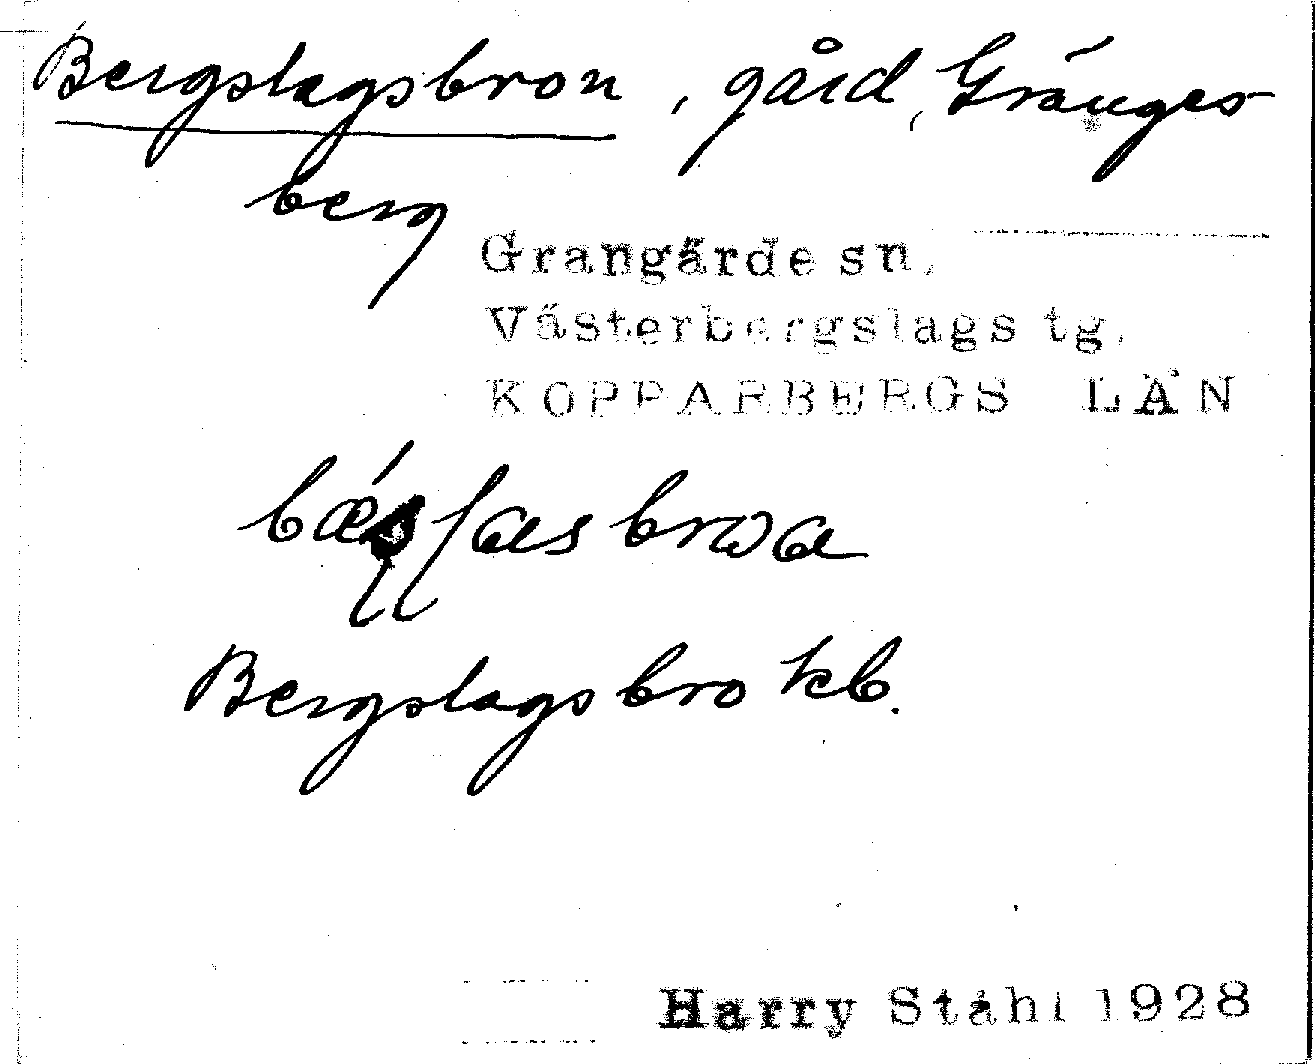 Bergslagsbron, gård, Gränges
berg
Grangärde sn,
Västerbergslags tg.
KOPPARBERGS LÄN
Bergslagsbro kb.
Harry Ståhl 1928